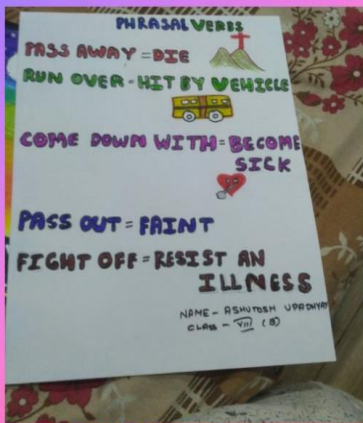 PHRASAL VERBS
PASS AWAY = DIE
RUN OVER - HIT BY VEHICLE
COME DOWN WITH = BECOME
SICK
PASS OUT = FAINT
FIGHT OFF = RESIST AN
ILLNESS
NAME - ASHUTOSH UPADHYAY
CLASS - VII (B)